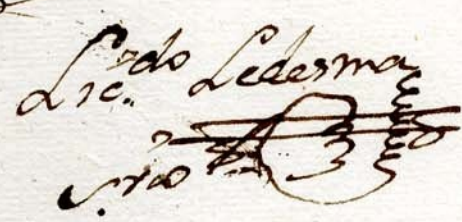 Lic.do Ledesma
srio